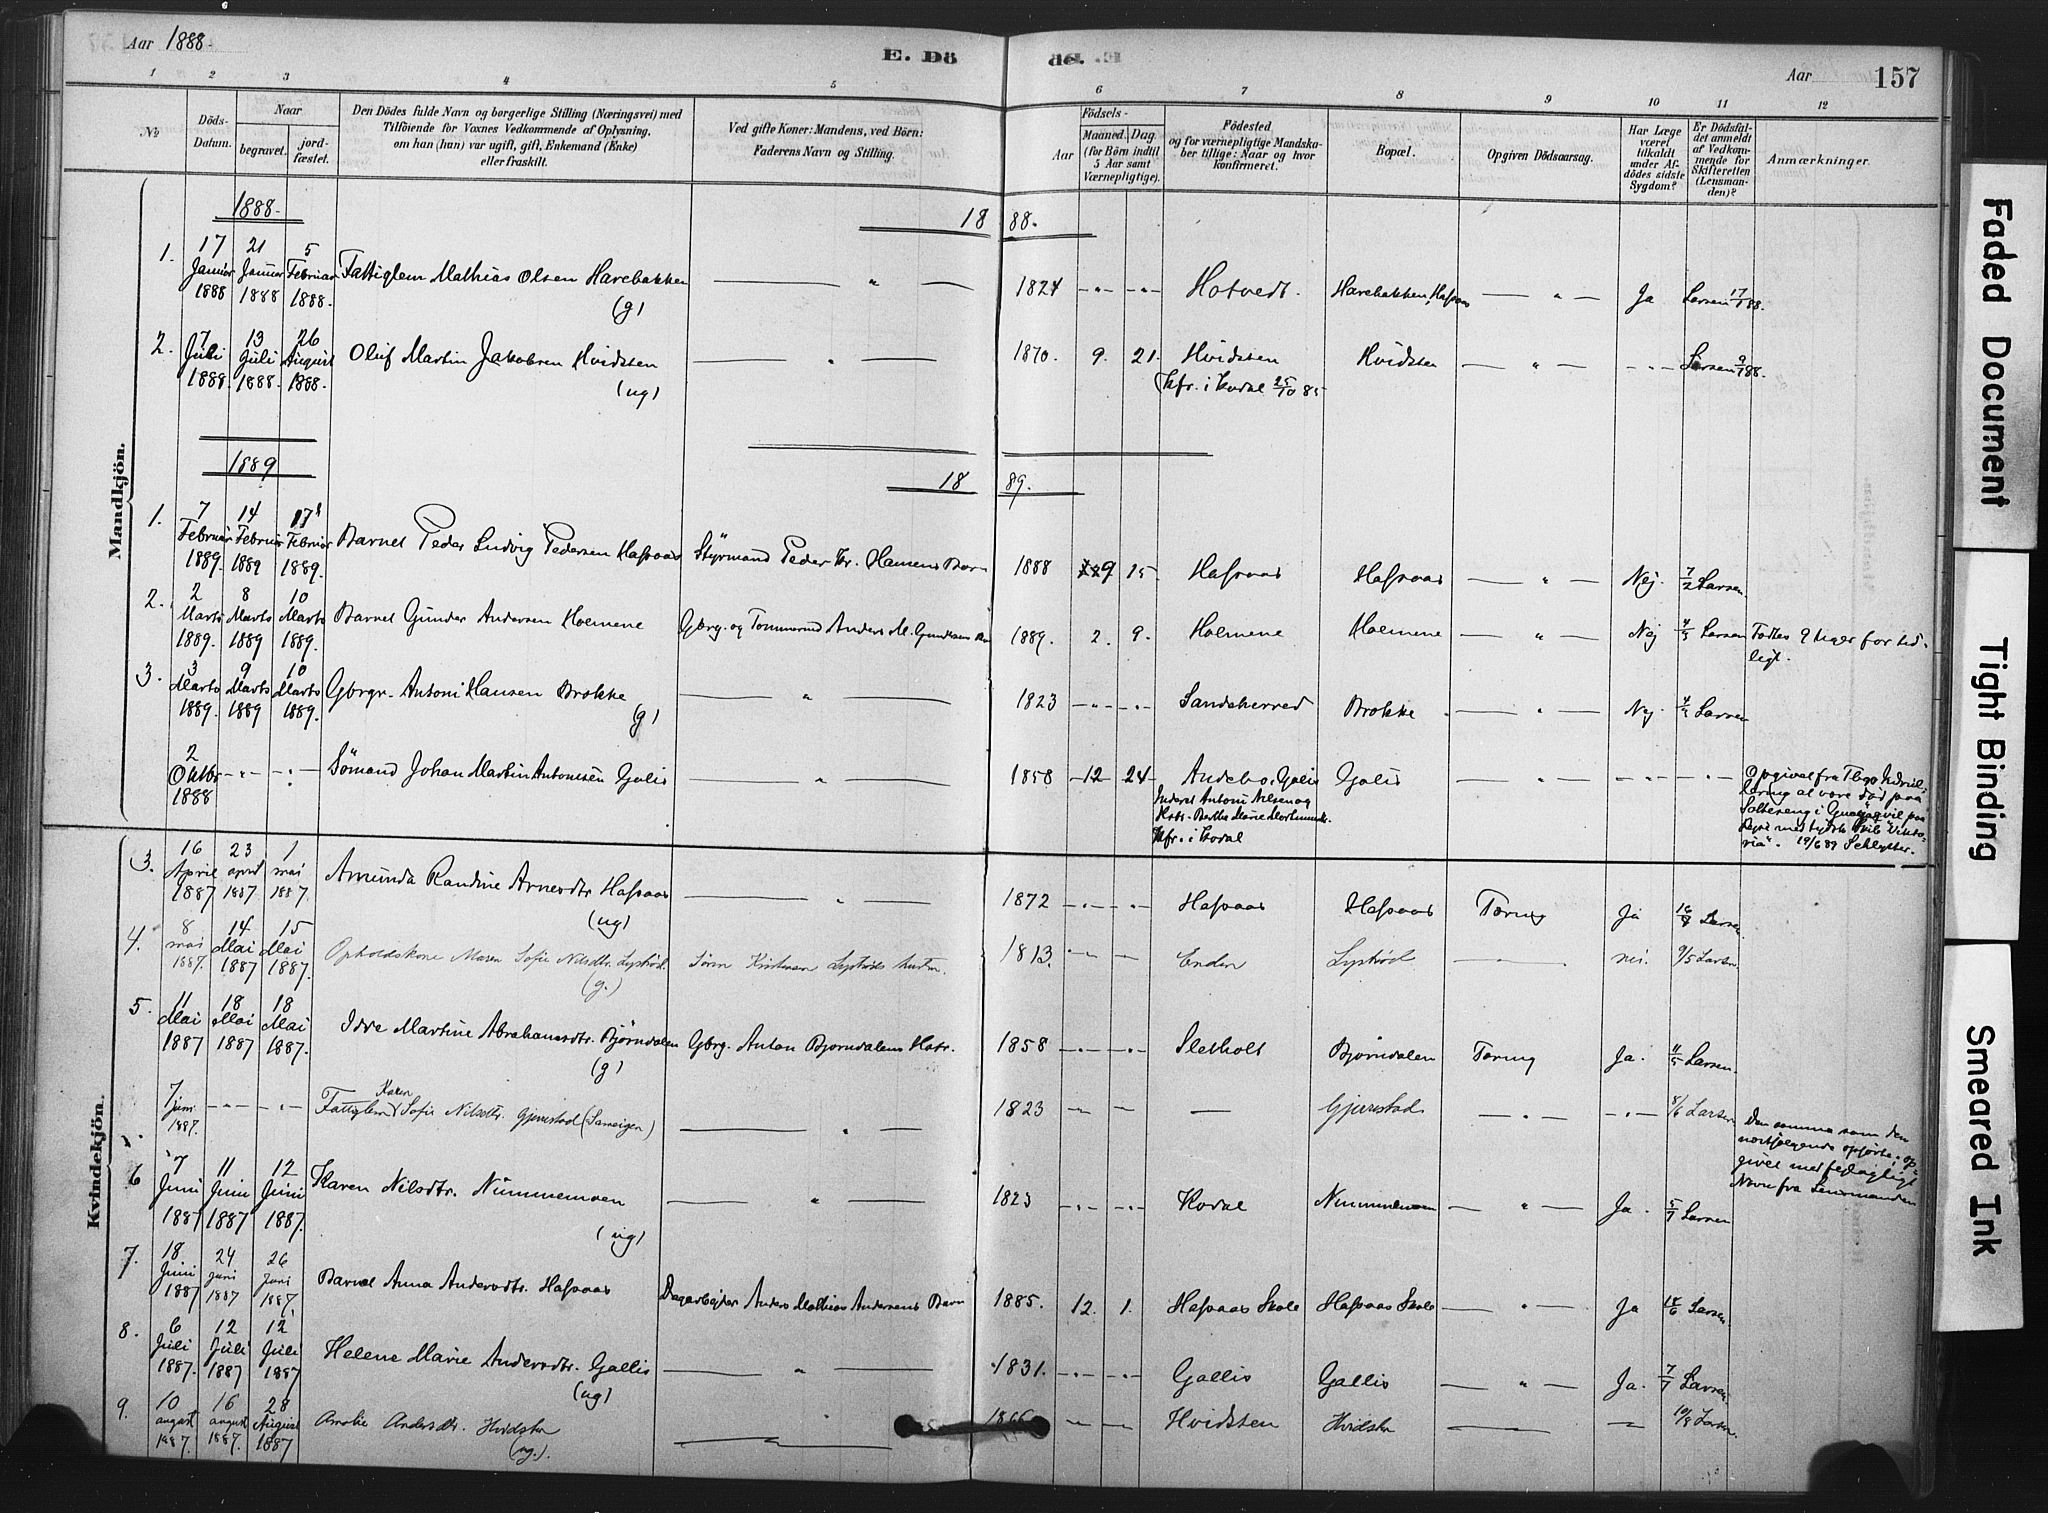 Aar 1888.
E. Dö
öd. E.
Aar
157
1 2 3 4 5 6 7 8 9 10 11 12
№
Döds-
Datum.
Naar
begravet.
jord-
fæstet.
Den Dödes fulde Navn og borgerlige Stilling (Næringsvei) med
Tilföiende for Voxnes Vedkommende af Oplysning,
om han (hun) var ugift, gift, Enkemand (Enke)
eller fraskilt.
Ved gifte Koner: Mandens, ved Börn:
Faderens Navn og Stilling.
Födsels-
Aar
Maaned.
Dag.
(for Börn indtil
5 Aar samt
Værnepligtige).
Födested
og for værnepligtige Mandska-
ber tillige: Naar og hvor
konfirmeret.
Bopæl.
Opgiven Dödsaarsag.
Har Læge
været
tilkaldt
under Af-
dödes sidste
Sygdom?
Er Dödsfal-
det anmeldt
af Vedkom-
mende for
Skifteretten
(Lensman-
den)?
Anmærkninger.
Mandkjön.
1888.
18 88.
1. 17 Januar 1888 21 Januar 1888 5 Februar 1888. Fattiglem Mathias Olsen Harebakken (g) — " — 1824 -"- -"- Hotvedt. Harebakken, Hafsaas — " — Ja Larsen 17/1 88.
2. 7 Juli 1888. 13 Juli 1888. 26 August 1888. Oluf Martin Jakobsen Hvidsten (ug) — " — 1870. 9. 21. Hvidsten Kfr. i Kodal 25/10 85 Hvidsten — " — -"- Larsen 9/7 88.
1889
18 89.
1. 7 Februar 1889. 14 Februar 1889 17 Februar 1889. Barnet Peder Ludvig Pedersen Hafsaas Styrmand Peder Kr. Hansens Barn 1888 9 15. Hafsaas Hafsaas — " — Nej. 7/2 Larsen
2. 2 Marts 1889. 8 Marts 1889 10 Marts 1889. Barnet Gunder Andersen Holmene Gbrg. og Tømmermd Anders M. Gundersens 1889. 2. 9. Holmene Holmene — " — Nej 4/3 Larsen Fødtes 9 Uger for tid-
ligt.
3. 3 Marts 1889. 9 Marts 1889 10 Marts 1889. Gbrgr. Antoni Hansen Brokke (g) — " — 1823 -"- -"- Sandeherred Brokke — " — Nej. 4/3 Larsen
2 Oktbr 1888 -"- -"- Sömand Johan Martin Antonisen Galis — " — 1858 12 24 Andebo, Galis Galis — " — -"- -"-
Inderst Antoni Nilsen og
Hstr. Berthe Marie
Kfr. i Kodal
Opgivet fra Tbgs
at være död paa
i Guayaquil paa
med Skib "Vikto-
ria". 19/6 89 Schlytter.
Kvindekjön.
3. 16 April 1887 23 april 1887. 1 mai 1887. Amunda Randine Arnesdtr Hafsaas (ug) — " — 1872 -"- -"- Hafsaas Hafsaas Tæring Ja 16/4 Larsen.
4. 8 mai 1887. 14 Mai 1887 15 Mai 1887. Opholdskone Maren Sofie Nilsdtr. Lystöd. (g.) Sören Kristensen Lystöds hustru. 1813. -"- — Enden Lystöd — nei. 9/5 Larsen.
5. 11 Mai 1887 18 Mai 1887 18 Mai 1887. Idve Martine Abrahamsdtr. Björndalen (g) Gbrg. Anton Bjorndalens Hstr. 1858 -"- -"- Sletholt Bjorndalen Tæring Ja. 11/5 Larsen.
7 juni 1887. -"- -"- Fattiglem Karen Sofie Nilsdtr. Gjerestad — " — 1823 — — — Gjerestad — " — -"- 8/6 Larsen
Den samme som den
opförte, op-
givet med fejlagtigt
Navn fra Lensmanden
6 7 Juni 1887 11 Juni 1887 12 Juni 1887. Karen Nilsdtr. Nummemoen (ug) — " — 1823 -"- -"- Kodal Nummemoen — " — Ja. 5/7 Larsen
7. 18 Juni 1887 24 juni 1887 26 Juni 1887. Barnet Anna Andersdtr. Hafsaas Dagarbejder Anders Mathias Andersens Barn 1885. 12. 1. Hafsaas Skole Hafsaas Skole — " — Ja 18/6 Larsen.
8. 6 Juli 1887. 12 Juli 1887 12 Juli 1887 Helene Marie Andersdtr. Gallis (ug) — " — 1831. -"- -"- Gallis Gallis — " — Ja. 7/7 Larsen.
9. 10 august 1887. 16 august 1887. 28 August 1887 Amalie Andersdtr. Hvidsten (ug). — 1866 — — Hvidsten Hvidsten — — 10/8 Larsen.
Faded Document
Tight Binding
Smeared Ink